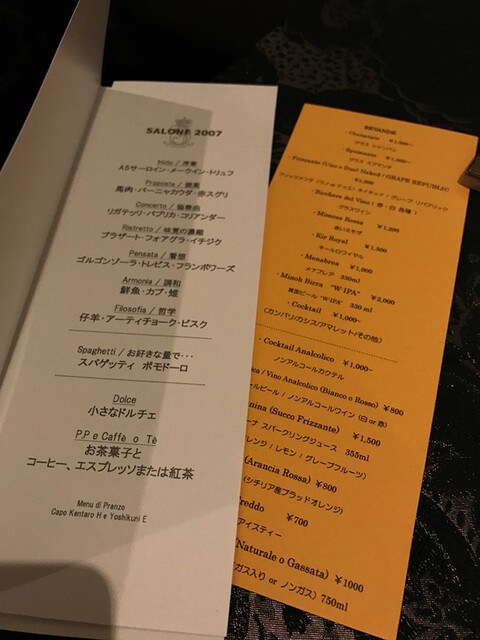 SALONE 2007
Inizio / 序章
A5サーロイン・メークイン・トリュフ
Proposta / 提案
馬肉・バーニャカウダ・赤スグリ
Concerto / 協奏曲
リガテッリ・パプリカ・コリアンダー
Ristretto / 味覚の凝縮
ブラザート・フォアグラ・イチジク
Pensata / 着想
ゴルゴンゾーラ・トレビス・フランボワーズ
Armonia / 調和
鮮魚・カブ・雉
Filosofia / 哲学
仔羊・アーティチョーク・ビスク
Spaghetti / お好きな量で・・・
スパゲッティ ポモドーロ
Dolce
小さなドルチェ
P.P e Caffè o Tè
お茶菓子と
コーヒー、エスプレッソまたは紅茶
Menu di Pranzo
Capo Kentaro H e Yoshikuni E
BEVANDE
・Champagne ¥1,800~
グラス シャンパン
・Spumante ¥1,000~
グラス スプマンテ
・Frizzante (Uno o Due) Naked / GRAPE REPUBLIC
¥1,500
・Bicchiere del Vino ( 赤・白 各種 )
グラスワイン ¥1,200
・Mimosa Rossa ¥1,200
赤いミモザ
・Kir Royal ¥1,500
キールロワイヤル
・Menabrea ¥1,000
メナブレア 330ml
・Minoh Birra "W-IPA" ¥2,000
箕面ビール "W-IPA" 330 ml
・Cocktail ¥1,000~
(カンパリ/カシス/アマレット/その他)
・Cocktail Analcolico ¥1,000~
ノンアルコールカクテル
/ Vino Analcolico (Bianco o Rosso) ¥800
ールビール / ノンアルコールワイン (白 or 赤)
nina (Succo Frizzante) ¥1,500
スパークリングジュース 355ml
レンジ / レモン / グレープフルーツ)
(Arancia Rossa) ¥800
(シチリア産ブラッドオレンジ)
reddo ¥700
アイスティー
(Naturale o Gassata) ¥1000
ガス入り or ノンガス) 750ml